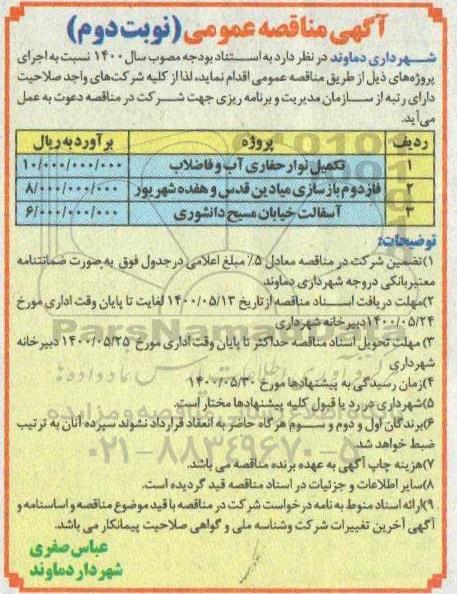 آگهی مناقصه عمومی (نوبت دوم)
شهرداری دماوند در نظر دارد به استناد بودجه مصوب سال ۱۴۰۰ نسبت به اجرای
پروژه‌های ذیل از طریق مناقصه عمومی اقدام نماید، لذا از کلیه شرکت‌های واجد صلاحیت
دارای رتبه از سازمان مدیریت و برنامه ریزی جهت شرکت در مناقصه دعوت به عمل
می‌آید.
ردیف پروژه برآورد به ریال
۱ تکمیل نوار حفاری آب و فاضلاب ۱۰/۰۰۰/۰۰۰/۰۰۰
۲ فاز دوم بازسازی میادین قدس و هفده شهریور ۸/۰۰۰/۰۰۰/۰۰۰
۳ آسفالت خیابان مسیح دانشوری ۶/۰۰۰/۰۰۰/۰۰۰
توضیحات:
۱)تضمین شرکت در مناقصه معادل ۵٪ مبلغ اعلامی در جدول فوق به صورت ضمانتنامه
معتبر بانکی در وجه شهرداری دماوند
۲)مهلت دریافت اسناد مناقصه از تاریخ ۱۴۰۰/۰۵/۱۳ لغایت تا پایان وقت اداری مورخ
۱۴۰۰/۰۵/۲۴ دبیرخانه شهرداری
۳) مهلت تحویل اسناد مناقصه حداکثر تا پایان وقت اداری مورخ ۱۴۰۰/۰۵/۲۵ دبیرخانه
شهرداری
۴)زمان رسیدگی به پیشنهادها مورخ ۱۴۰۰/۰۵/۳۰
۵)شهرداری در رد یا قبول کلیه پیشنهادها مختار است.
۶)برندگان اول و دوم و سوم هرگاه حاضر به انعقاد قرارداد نشوند سپرده آنان به ترتیب
ضبط خواهد شد.
۷)هزینه چاپ آگهی به عهده برنده مناقصه می باشد.
۸)سایر اطلاعات و جزئیات در اسناد مناقصه قید گردیده است.
۹)ارائه اسناد منوط به نامه درخواست شرکت در مناقصه با قید موضوع مناقصه و اساسنامه و
آگهی آخرین تغییرات شرکت وشناسه ملی و گواهی صلاحیت پیمانکار می باشد.
عباس صفری
شهردار دماوند
ParsNamadData
۰۲۱-۸۸۳۴۹۶۷۰-۵